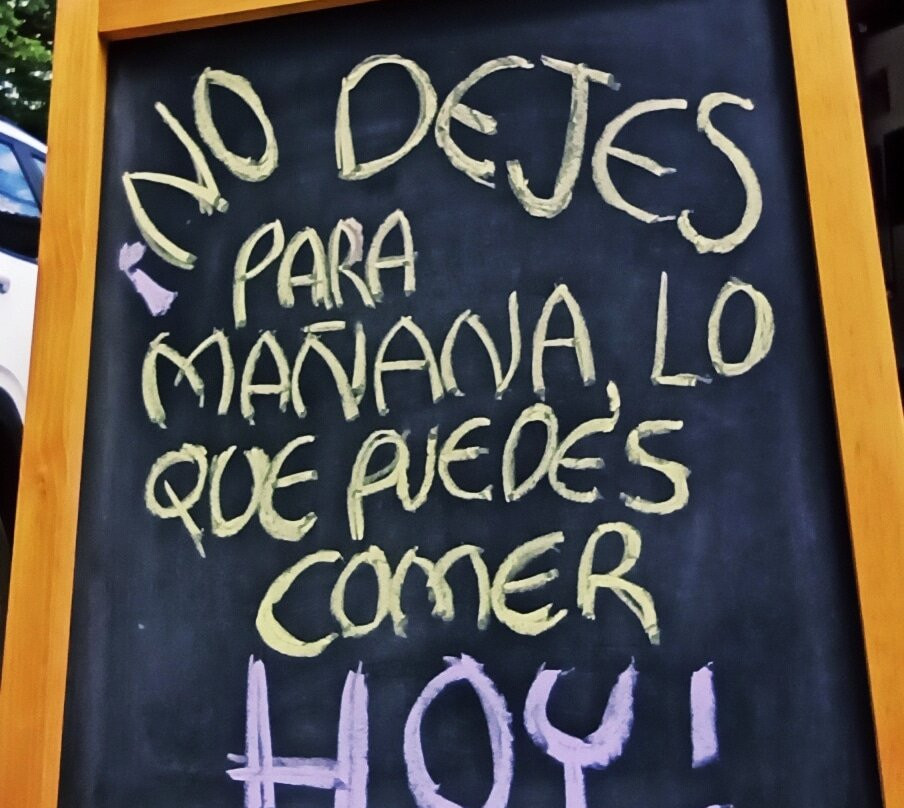 ¡NO DEJES
PARA
MAÑANA, LO
QUE PUEDES
COMER
HOY!